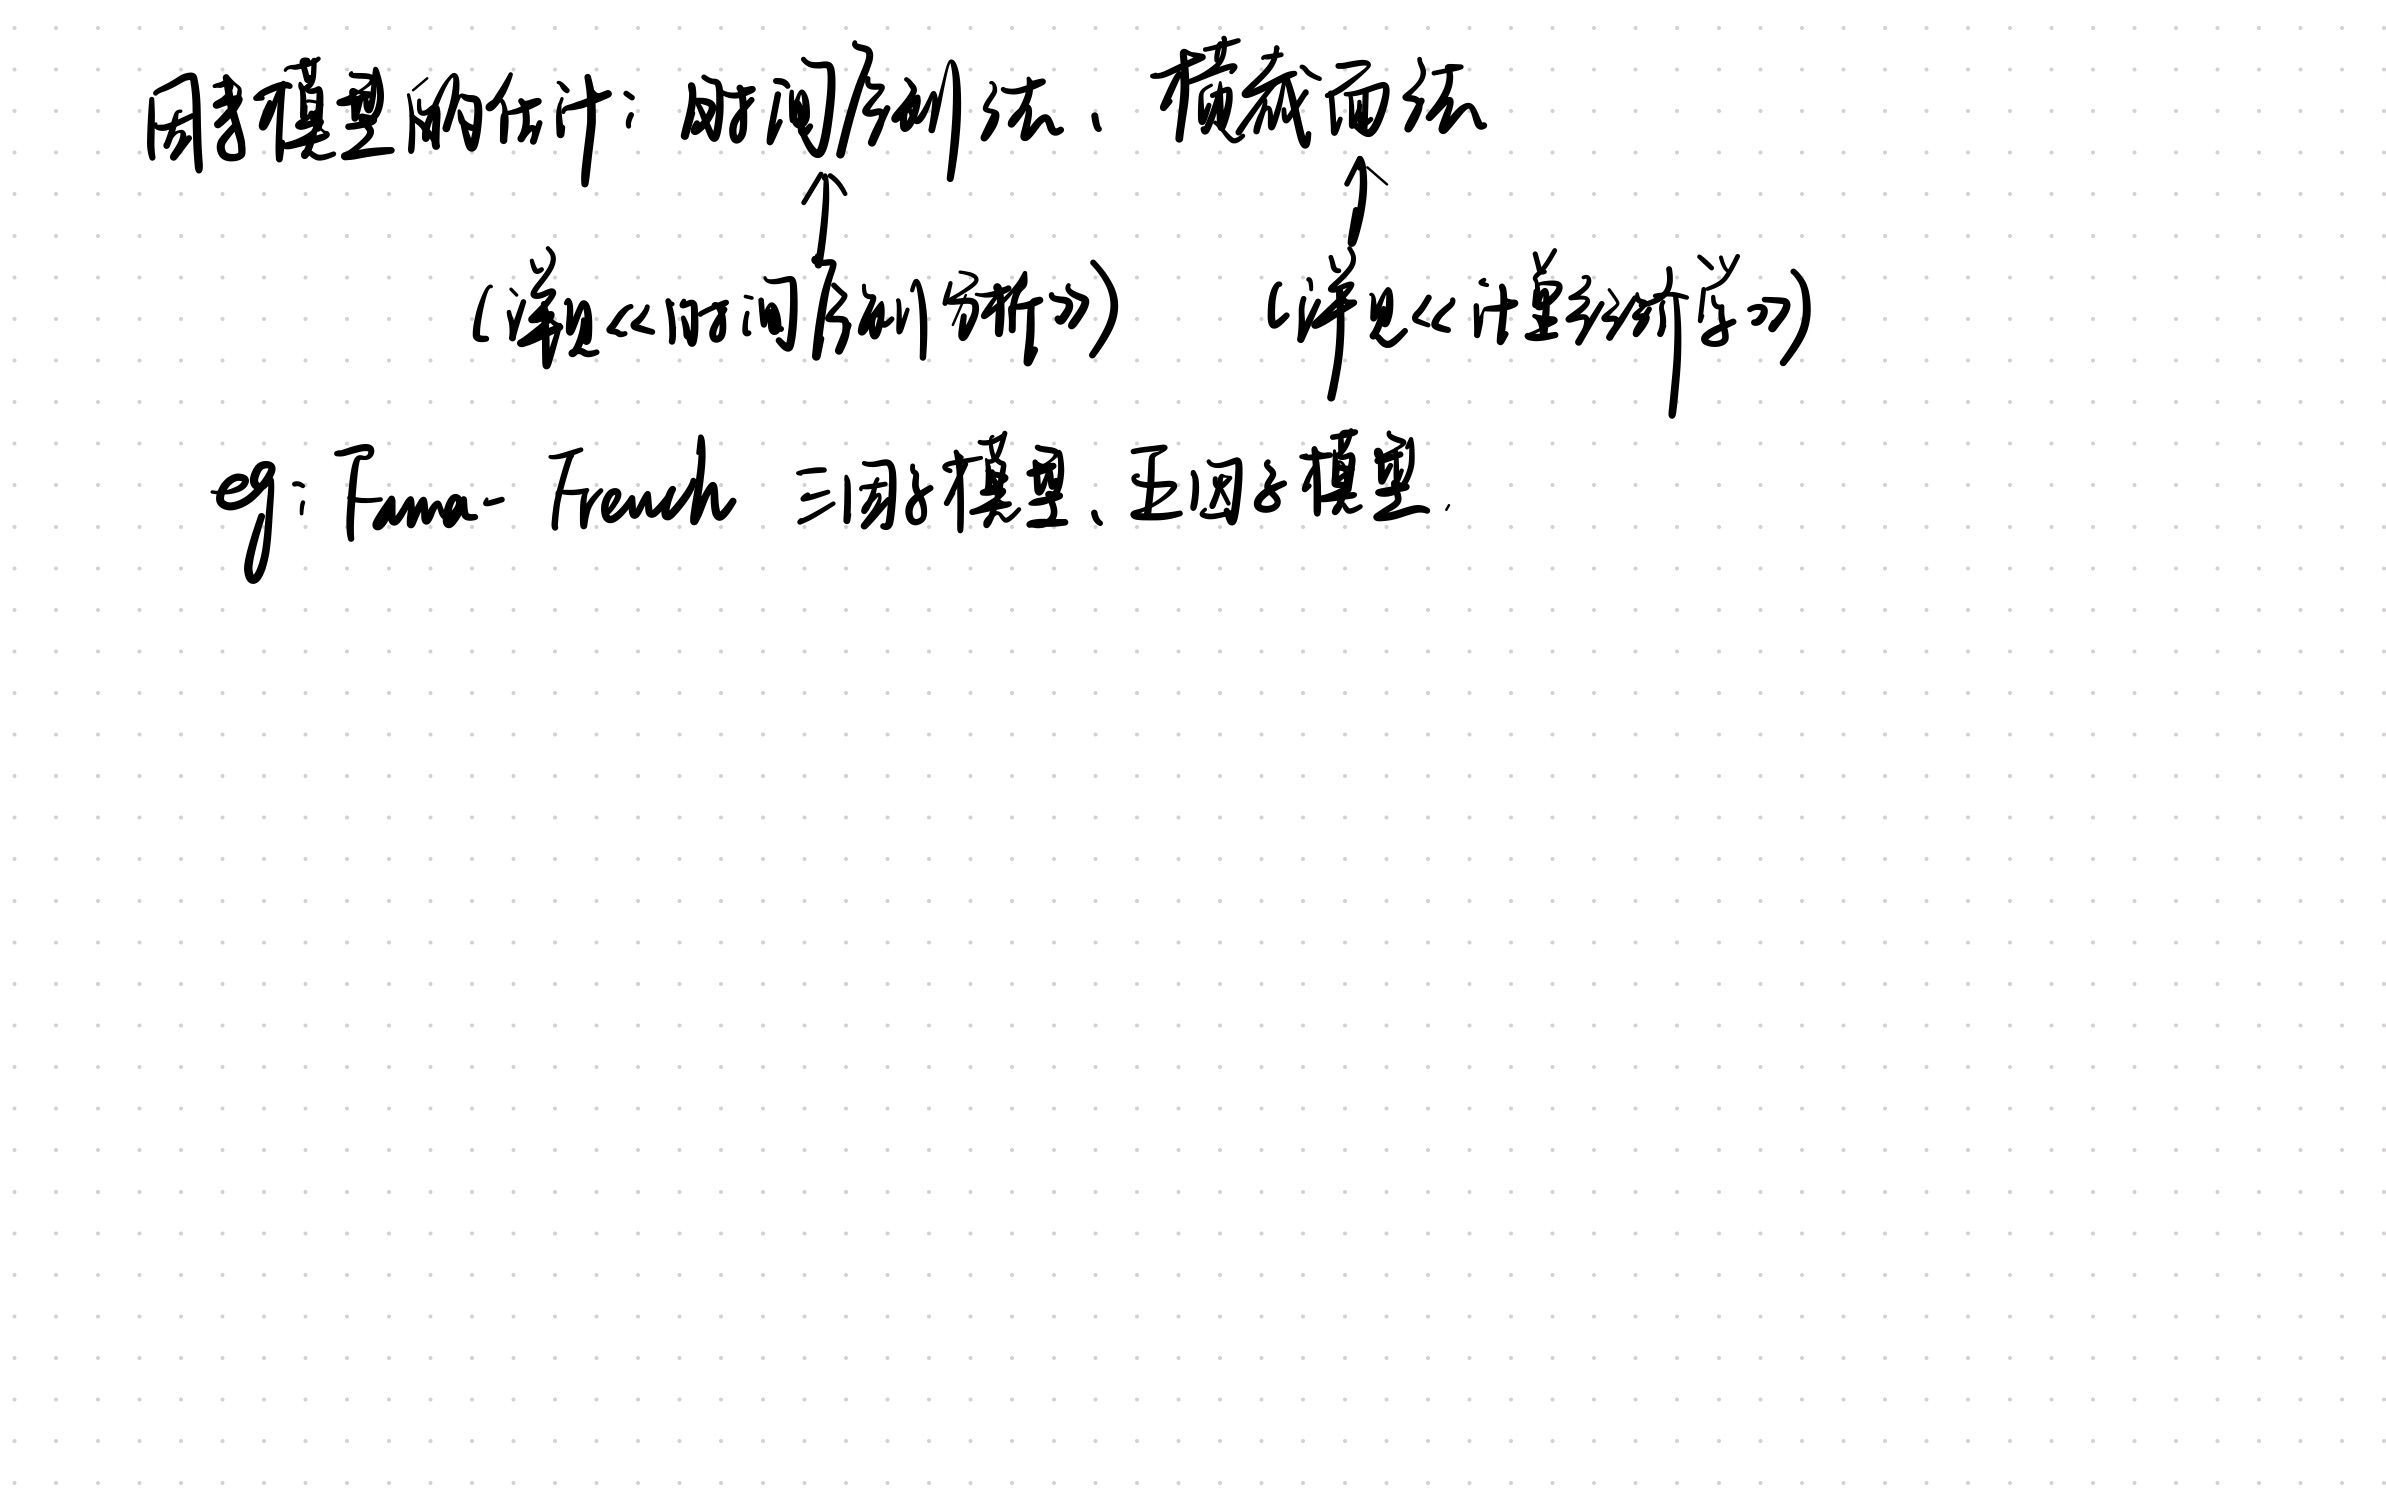 因子模型的估计：时间序列方法、横截面方法
（详细见《时间序列分析》）（详细见《计量经济学》）
eg：Fama - French 三因子模型、五因子模型.